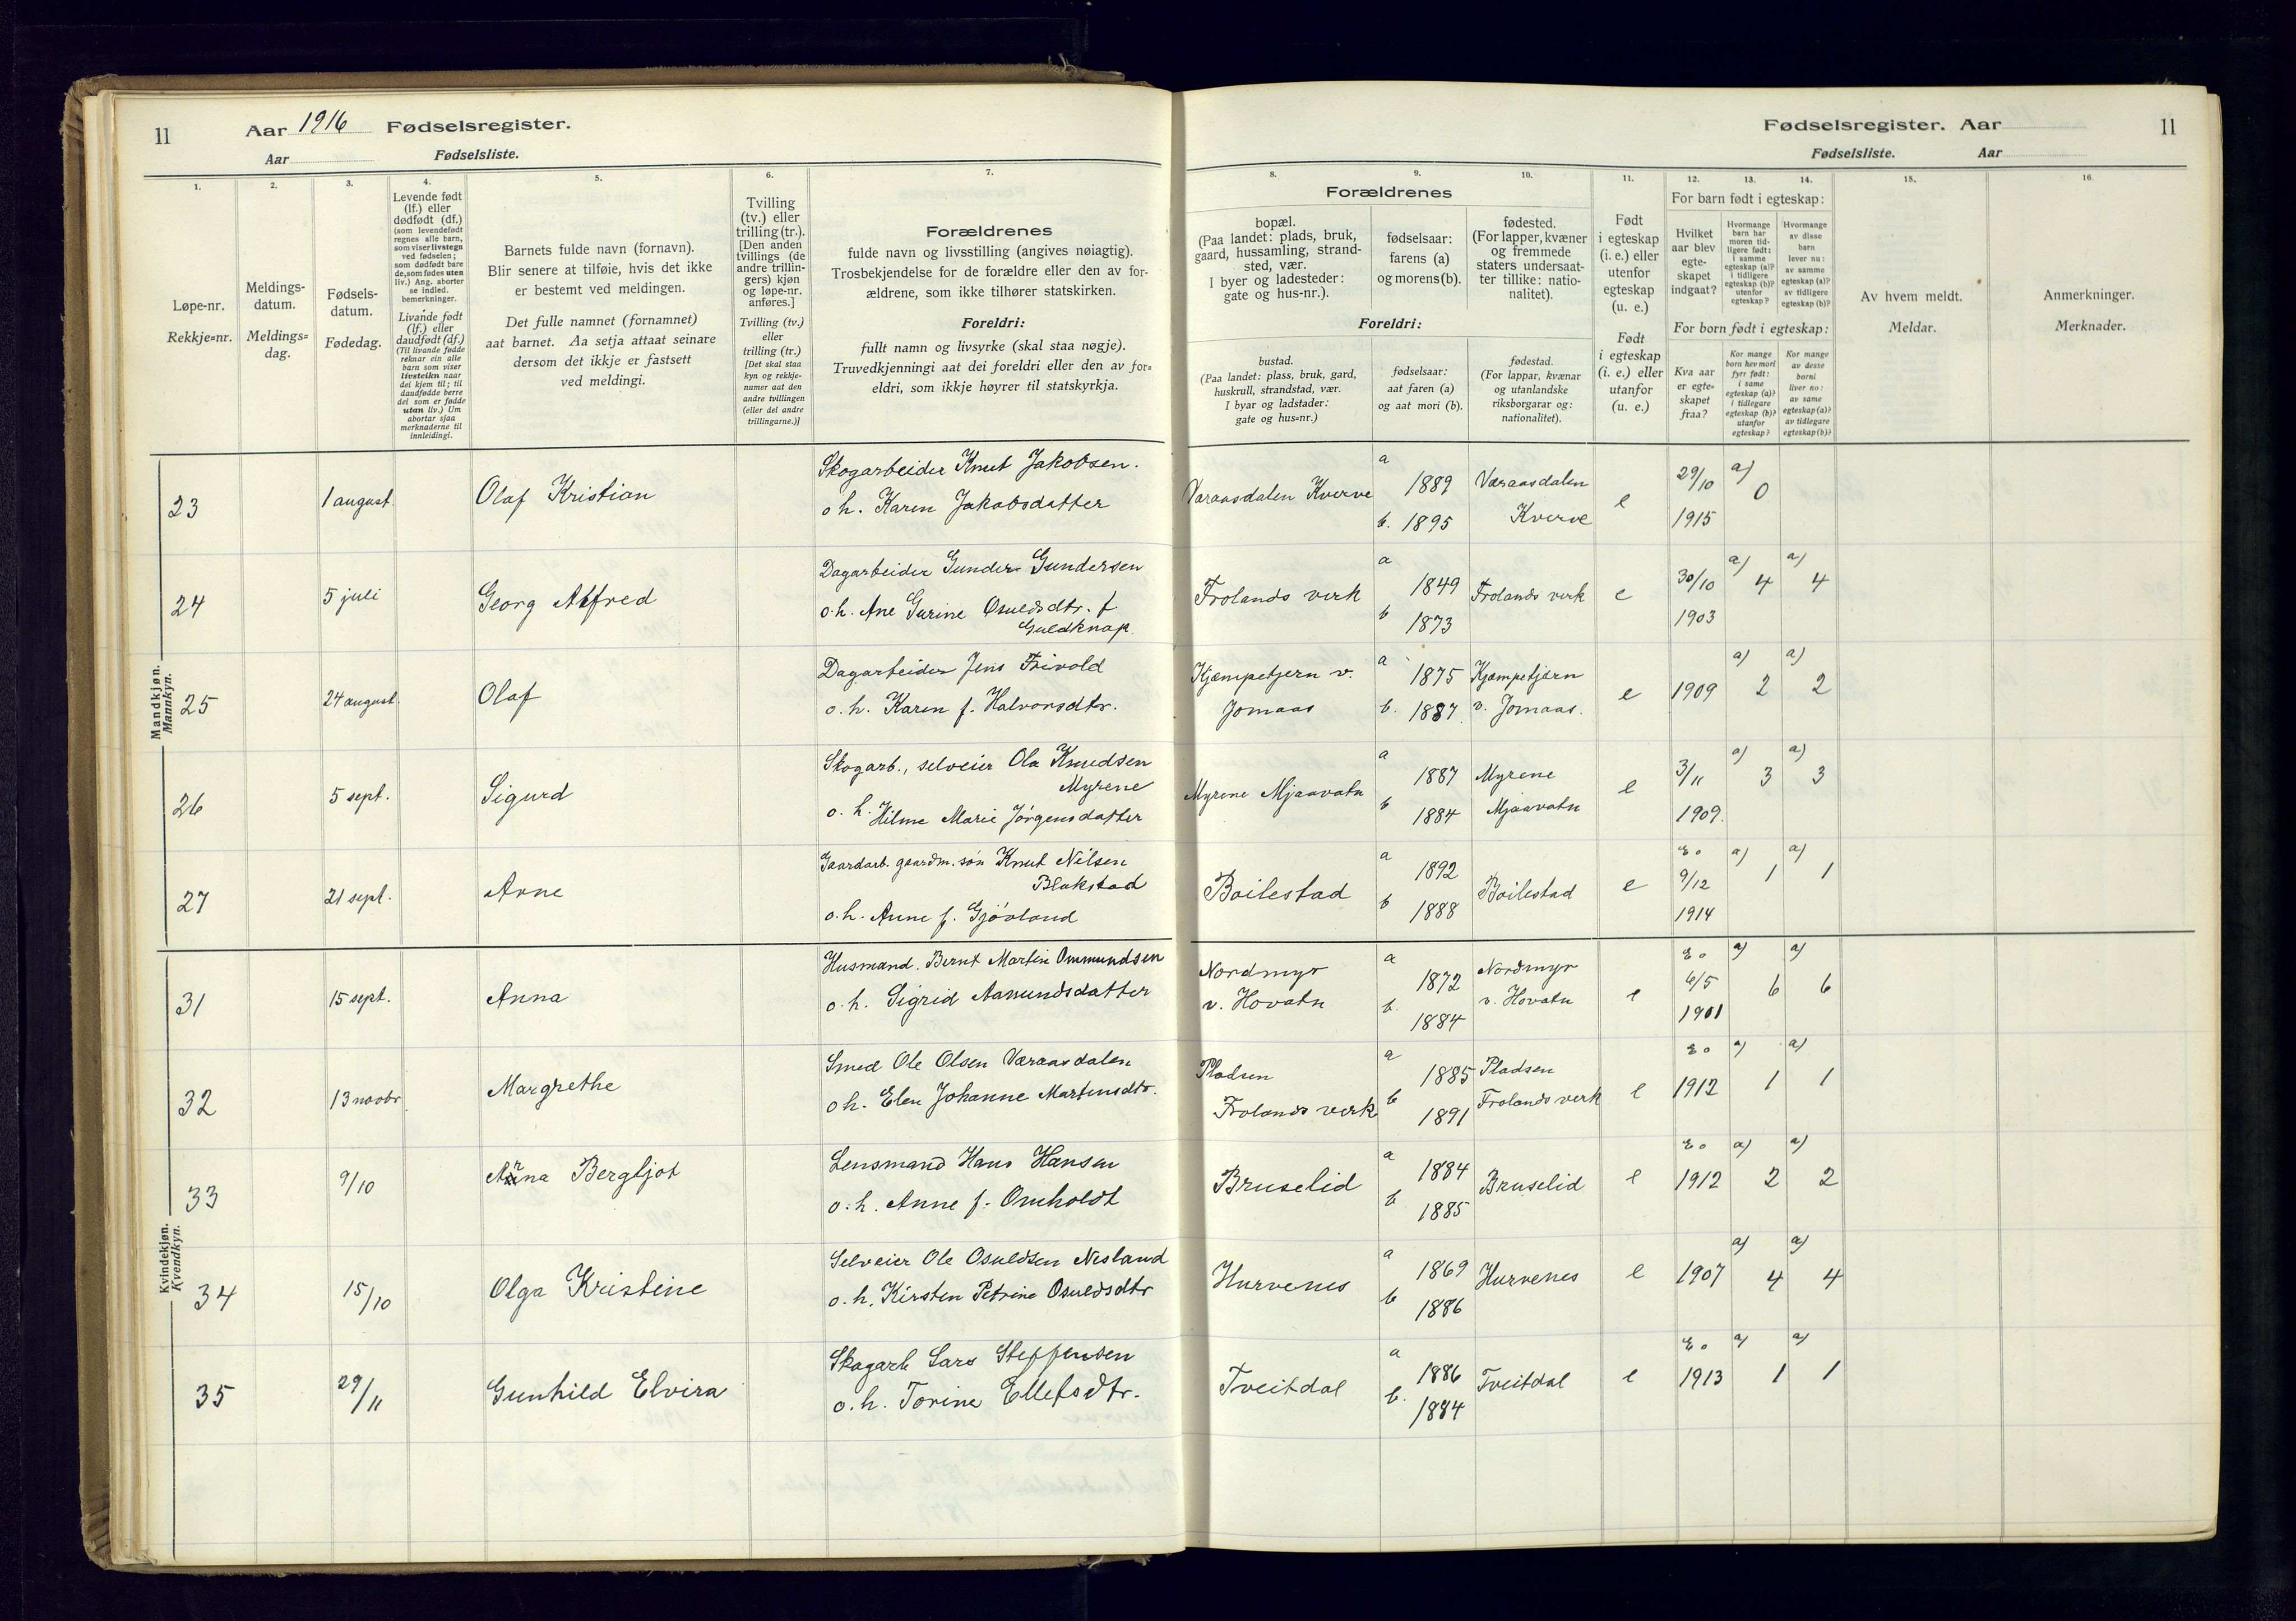 11
Aar 1916 Fødselsregister.
Aar Fødselsliste.
1.
2.
3.
4.
5.
6.
7.
Løpe-nr.
Rekkje=nr.
Meldings-
datum.
Meldings=
dag.
Fødsels-
datum.
Fødedag.
Levende født
(lf.) eller
dødfødt (df.)
(som levendefødt
regnes alle barn,
som viser livstegn
ved fødselen;
som dødfødt bare
de, som fødes uten
liv.) Ang. aborter
se indled.
bemerkninger.
Livande født
(lf.) eller
daudfødt (df.)
(Til livande fødde
reknar ein alle
barn som viser
livsteikn naar
dei kjem til; til
daudfødde berre
dei som er fødde
utan liv.) Um
abortar sjaa
merknaderne til
innleidingi.
Barnets fulde navn (fornavn).
Blir senere at tilføie, hvis det ikke
er bestemt ved meldingen.
Det fulle namnet (fornamnet)
aat barnet. Aa setja attaat seinare
dersom det ikkje er fastsett
ved meldingi.
Tvilling
(tv.) eller
trilling (tr.).
[Den anden
tvillings (de
andre trillin-
gers) kjøn
og løpe-nr.
anføres.]
Tvilling (tv.)
eller
trilling (tr.)
[Det skal staa
kyn og rekkje-
numer aat den
andre tvillingen
(eller dei andre
trillingarne.)]
Forældrenes
fulde navn og livsstilling (angives nøiagtig).
Trosbekjendelse for de forældre eller den av for-
ældrene, som ikke tilhører statskirken.
Foreldri:
fullt namn og livsyrke (skal staa nøgje).
Truvedkjenningi aat dei foreldri eller den av for=
eldri, som ikkje høyrer til statskyrkja.
Mandkjøn.
Mannkyn.
23 1 august. Olaf Kristian Skogarbeider Knut Jakobsen.
o h. Karen Jakobsdatter
24 5 juli Georg Alfred Dagarbeider Gunder Gundersen
o.h. Ane Gurine Osuldsdtr. f
Guldknap.
25 24 august. Olaf Dagarbeider Jens Frivold
o. h. Karen f. Halvorsdtr.
26 5 sept. Sigurd Skogarb., selveier Ola Knudsen
Myrene
o. h. Hilme Marie Jørgensdatter
27 21 sept. Arne Gaardarb. gaardm. søn Knut Nilsen
Blakstad
o.h. Anne f. Gjøvland
Kvindekjøn.
Kvendkyn.
31 15 sept. Anna Husmand. Bernt Martin Ommundsen
o.h. Sigrid Aamundsdatter
32 13 novbr. Margrethe Smed Ole Olsen Væraasdalen
o h. Elen Johanne Martensdtr.
33 9/10 Anna Bergljot Lensmand Hans Hansen
o. h. Anne f. Omholdt
34 15/10 Olga Kristine Selveier Ole Osuldsen Nesland
o. h. Kirsten Petrine Osuldsdtr
35 29/11 Gunhild Elvira Skogarb Lars Steffensen
o. h. Torine Ellefsdtr.
Fødselsregister. Aar 11
Fødselsliste. Aar
8.
9.
10.
11.
12.
13.
14.
15.
16.
Forældrenes
bopæl.
(Paa landet: plads, bruk,
gaard, hussamling, strand-
sted, vær.
I byer og ladesteder:
gate og hus-nr.).
fødselsaar:
farens (a)
og morens (b).
fødested.
(For lapper, kvæner
og fremmede
staters undersaat-
ter tillike: natio-
nalitet).
Foreldri:
bustad.
(Paa landet: plass, bruk, gard,
huskrull, strandstad, vær.
I byar og ladstader:
gate og hus=nr.)
fødselsaar:
aat faren (a)
og aat mori (b).
fødestad.
(For lappar, kvænar
og utanlandske
riksborgarar og:
nationalitet).
Født
i egteskap
(i. e.) eller
utenfor
egteskap
(u. e.)
Født
i egteskap
(i. e.) eller
utanfor
(u. e.)
For barn født i egteskap:
Hvilket
aar blev
egte-
skapet
indgaat?
Hvormange
barn har
moren tid-
ligere født:
i samme
egteskap (a)?
i tidligere
egteskap (b)?
utenfor
egteskap?
Hvormange
av disse
barn
lever nu:
av samme
egteskap (a)?
av tidligere
egteskap (b)?
For born født i egteskap:
Kva aar
er egte=
skapet
fraa?
Kor mange
born hev mori
fyrr født:
i same
egteskap (a)?
i tidlegare
egteskap (b)?
utanfor
egteskap?
Kor mange
av desse
borni
liver no:
av same
egteskap (a)?
av tidlegare
egteskap (b)?
Av hvem meldt.
Meldar.
Anmerkninger.
Merknader.
Varaasdalen Kverve a 1889 b. 1895 Væraasdalen Kverve e 29/10 1915 a) 0
Frolands verk a 1849 b 1873 Frolands verk e 30/10 1903 a) 4 a) 4
Kjæmpetjern v. Jomaas a 1875 b. 1887. Kjæmpetjærn v. Jomaas. e 1909 a) 2 a) 2
Myrene Mjaavatn a 1887 b 1884 Myrene Mjaavatn e 3/11 1909. a) 3 a) 3
Boilestad a 1892 b 1888 Boilestad e 9/12 1914 a) 1 a) 1
Nordmyr v. Hovatn a 1872 b. 1884 Nordmyr v. Hovatn e 6/5 1901 a) 6 a) 6
Pladsen Frolands verk a 1885 b 1891 Pladsen Frolands verk e 1912 a) 1 a) 1
Bruselid a 1884 b 1885 Bruselid e 1912 a) 2 a) 2
Hurvenes a 1869 b 1886 Hurvenes e 1907 a) 4 a) 4
Tveitdal a 1886 b. 1884 Tveitdal e 1913 a) 1 a) 1